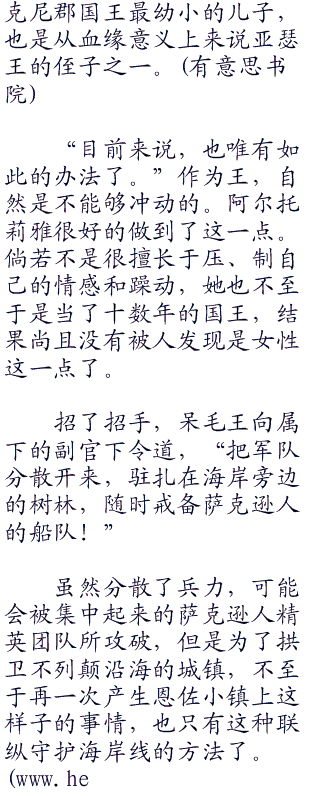 克尼郡国王最幼小的儿子，
也是从血缘意义上来说亚瑟
王的侄子之一。(有意思书
院)
“目前来说，也唯有如
此的办法了。”作为王，自
然是不能够冲动的。阿尔托
莉雅很好的做到了这一点。
倘若不是很擅长于压、制自
己的情感和躁动，她也不至
于是当了十数年的国王，结
果尚且没有被人发现是女性
这一点了。
招了招手，呆毛王向属
下的副官下令道，“把军队
分散开来，驻扎在海岸旁边
的树林，随时戒备萨克逊人
的船队！”
虽然分散了兵力，可能
会被集中起来的萨克逊人精
英团队所攻破，但是为了拱
卫不列颠沿海的城镇，不至
于再一次产生恩佐小镇上这
样子的事情，也只有这种联
纵守护海岸线的方法了。
(www.he